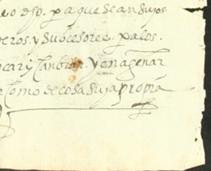 dso. pa que sean suyos
deros. y subcesores. pa los.
ocar y Canbiar. y enagenar
como de cosa suya propia